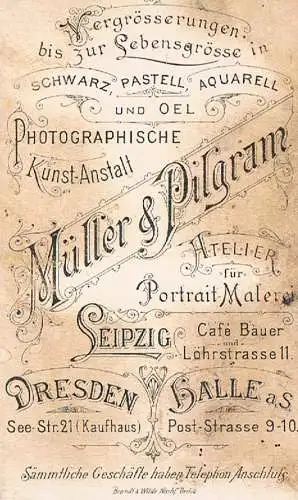 Vergrösserungen
bis zur Lebensgrösse in
SCHWARZ, PASTELL, AQUARELL
UND OEL
PHOTOGRAPHISCHE
Kunst-Anstalt
Müller & Pilgram
ATELIER
für
Portrait-Malerei
LEIPZIG
Café Bauer
und
Löhrstrasse 11.
DRESDEN
See-Str. 21 (Kaufhaus)
HALLE a.S.
Post-Strasse 9-10.
Sämmtliche Geschäfte haben Telephon Anschluss
Brandt & Wilde Nachf. Berlin